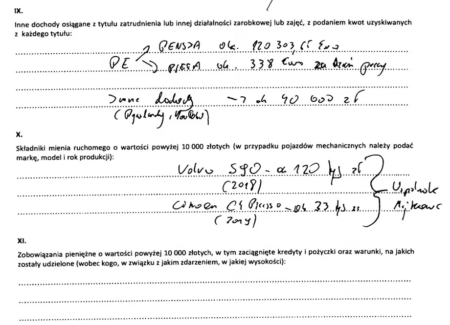 IX.
Inne dochody osiągane z tytułu zatrudnienia lub innej działalności zarobkowej lub zajęć, z podaniem kwot uzyskiwanych
z każdego tytułu:
PENSJA ok. 120 303,
PE
ok. 338 Euro za dzień pracy
Inne dochody → ok 40 000 zł
X.
Składniki mienia ruchomego o wartości powyżej 10 000 złotych (w przypadku pojazdów mechanicznych należy podać
markę, model i rok produkcji):
Volvo S90 - ok 120 tys zł
(2018)
Citroen C4 Picasso - ok 33 tys zł
(2014)
XI.
Zobowiązania pieniężne o wartości powyżej 10 000 złotych, w tym zaciągnięte kredyty i pożyczki oraz warunki, na jakich
zostały udzielone (wobec kogo, w związku z jakim zdarzeniem, w jakiej wysokości):